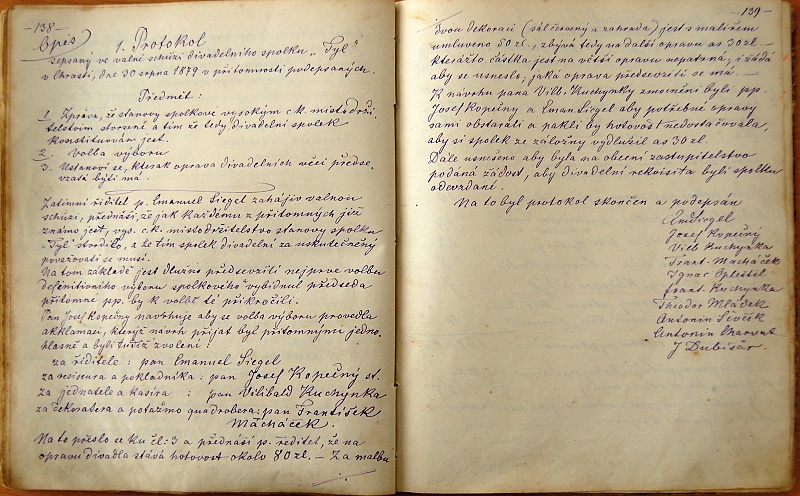 -138-
Opis
1. Protokol
sepsaný ve valné schůzi divadelního spolku „Tyl"
v Chrasti, dne 30 srpna 1879 v přítomnosti podepsaných.
Předmět:
1. Zpráva, že stanovy spolkové vysokým c.k. místodrži
telstvím stvrzené a tím že tedy divadelní spolek
konstituován jest.
2. Volba výboru
3. Ustanoví se, kterak oprava divadelních věcí předse-
vzata býti má.
Zatímní řiditel p. Emanuel Siegel zahájiv valnou
schůzi, přednáší, že jak každému z přítomných již
známo jest, vys. c.k. místodržitelstvo stanovy spolku
„Tyl" stvrdilo, a že tím spolek divadelní za uskutečněný
považovati se musí.
Na tom základě jest dlužno předsevzíti nejprve volbu
definitivního výboru spolkového vybídnul předseda
přítomné pp. by k volbě té přikročili.
Pan Josef Kopečný navrhuje aby se volba výboru provedla
akklamací, kterýž návrh přijat byl přítomnými jedno-
hlasně a byli tudíž zvoleni:
za řiditele: pan Emanuel Siegel
za resiseura a pokladníka: pan Josef Kopečný st.
za jednatele a kasíra : pan Vilibald Kuchynka
za dekoratera a potažmo quadrobera: pan František
Macháček.
Na to přešlo se ku čl: 3 a přednáší p. ředitel, že na
opravu divadla stává hotovost okolo 80 zl. – Za malbu
-139-
dvou dekorací (sál červený a zahrada) jest s malířem
umluveno 50 zl., zbývá tedy na další opravu as 30 zl
kterážto částka jest na větší opravu nepatrná, i žádá
aby se usneslo, jaká oprava předsevzíti se má. –
K návrhu pana Vilb. Kuchynky zmocněni byli pp.
Josef Kopečný a Eman Siegel aby potřebné opravy
sami obstarali a pakli by hotovost nedostačovala,
aby si spolek ze záložny vydlužil as 30 zl.
Dále usnešeno aby byla na obecní zastupitelstvo
podána žádost, aby divadelní rekvisita byli spolku
odevzdané.
Na to byl protokol skončen a podepsán
EmSiegel
Josef Kopečný
Vilb Kuchynka
Frant. Macháček
Ignac Opletil
Frant. Kuchynka
Theodor Mládek
Antonín Sivčík
Antonín
J Dubisár